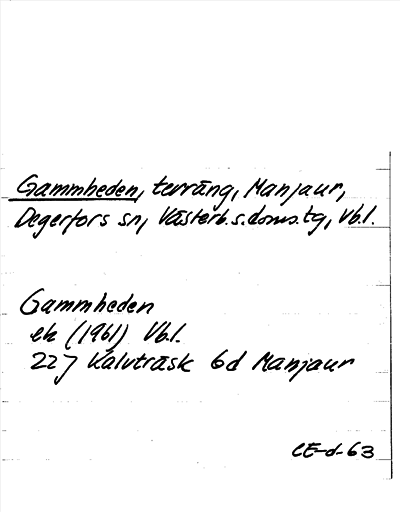 Gammheden, terräng, Manjaur,
Degerfors sn, Västerb.s.doms.tg, Vb.l.
Gammheden
ek (1961) Vb.l.
22J Kalvträsk 6d Manjaur
CE-d-63